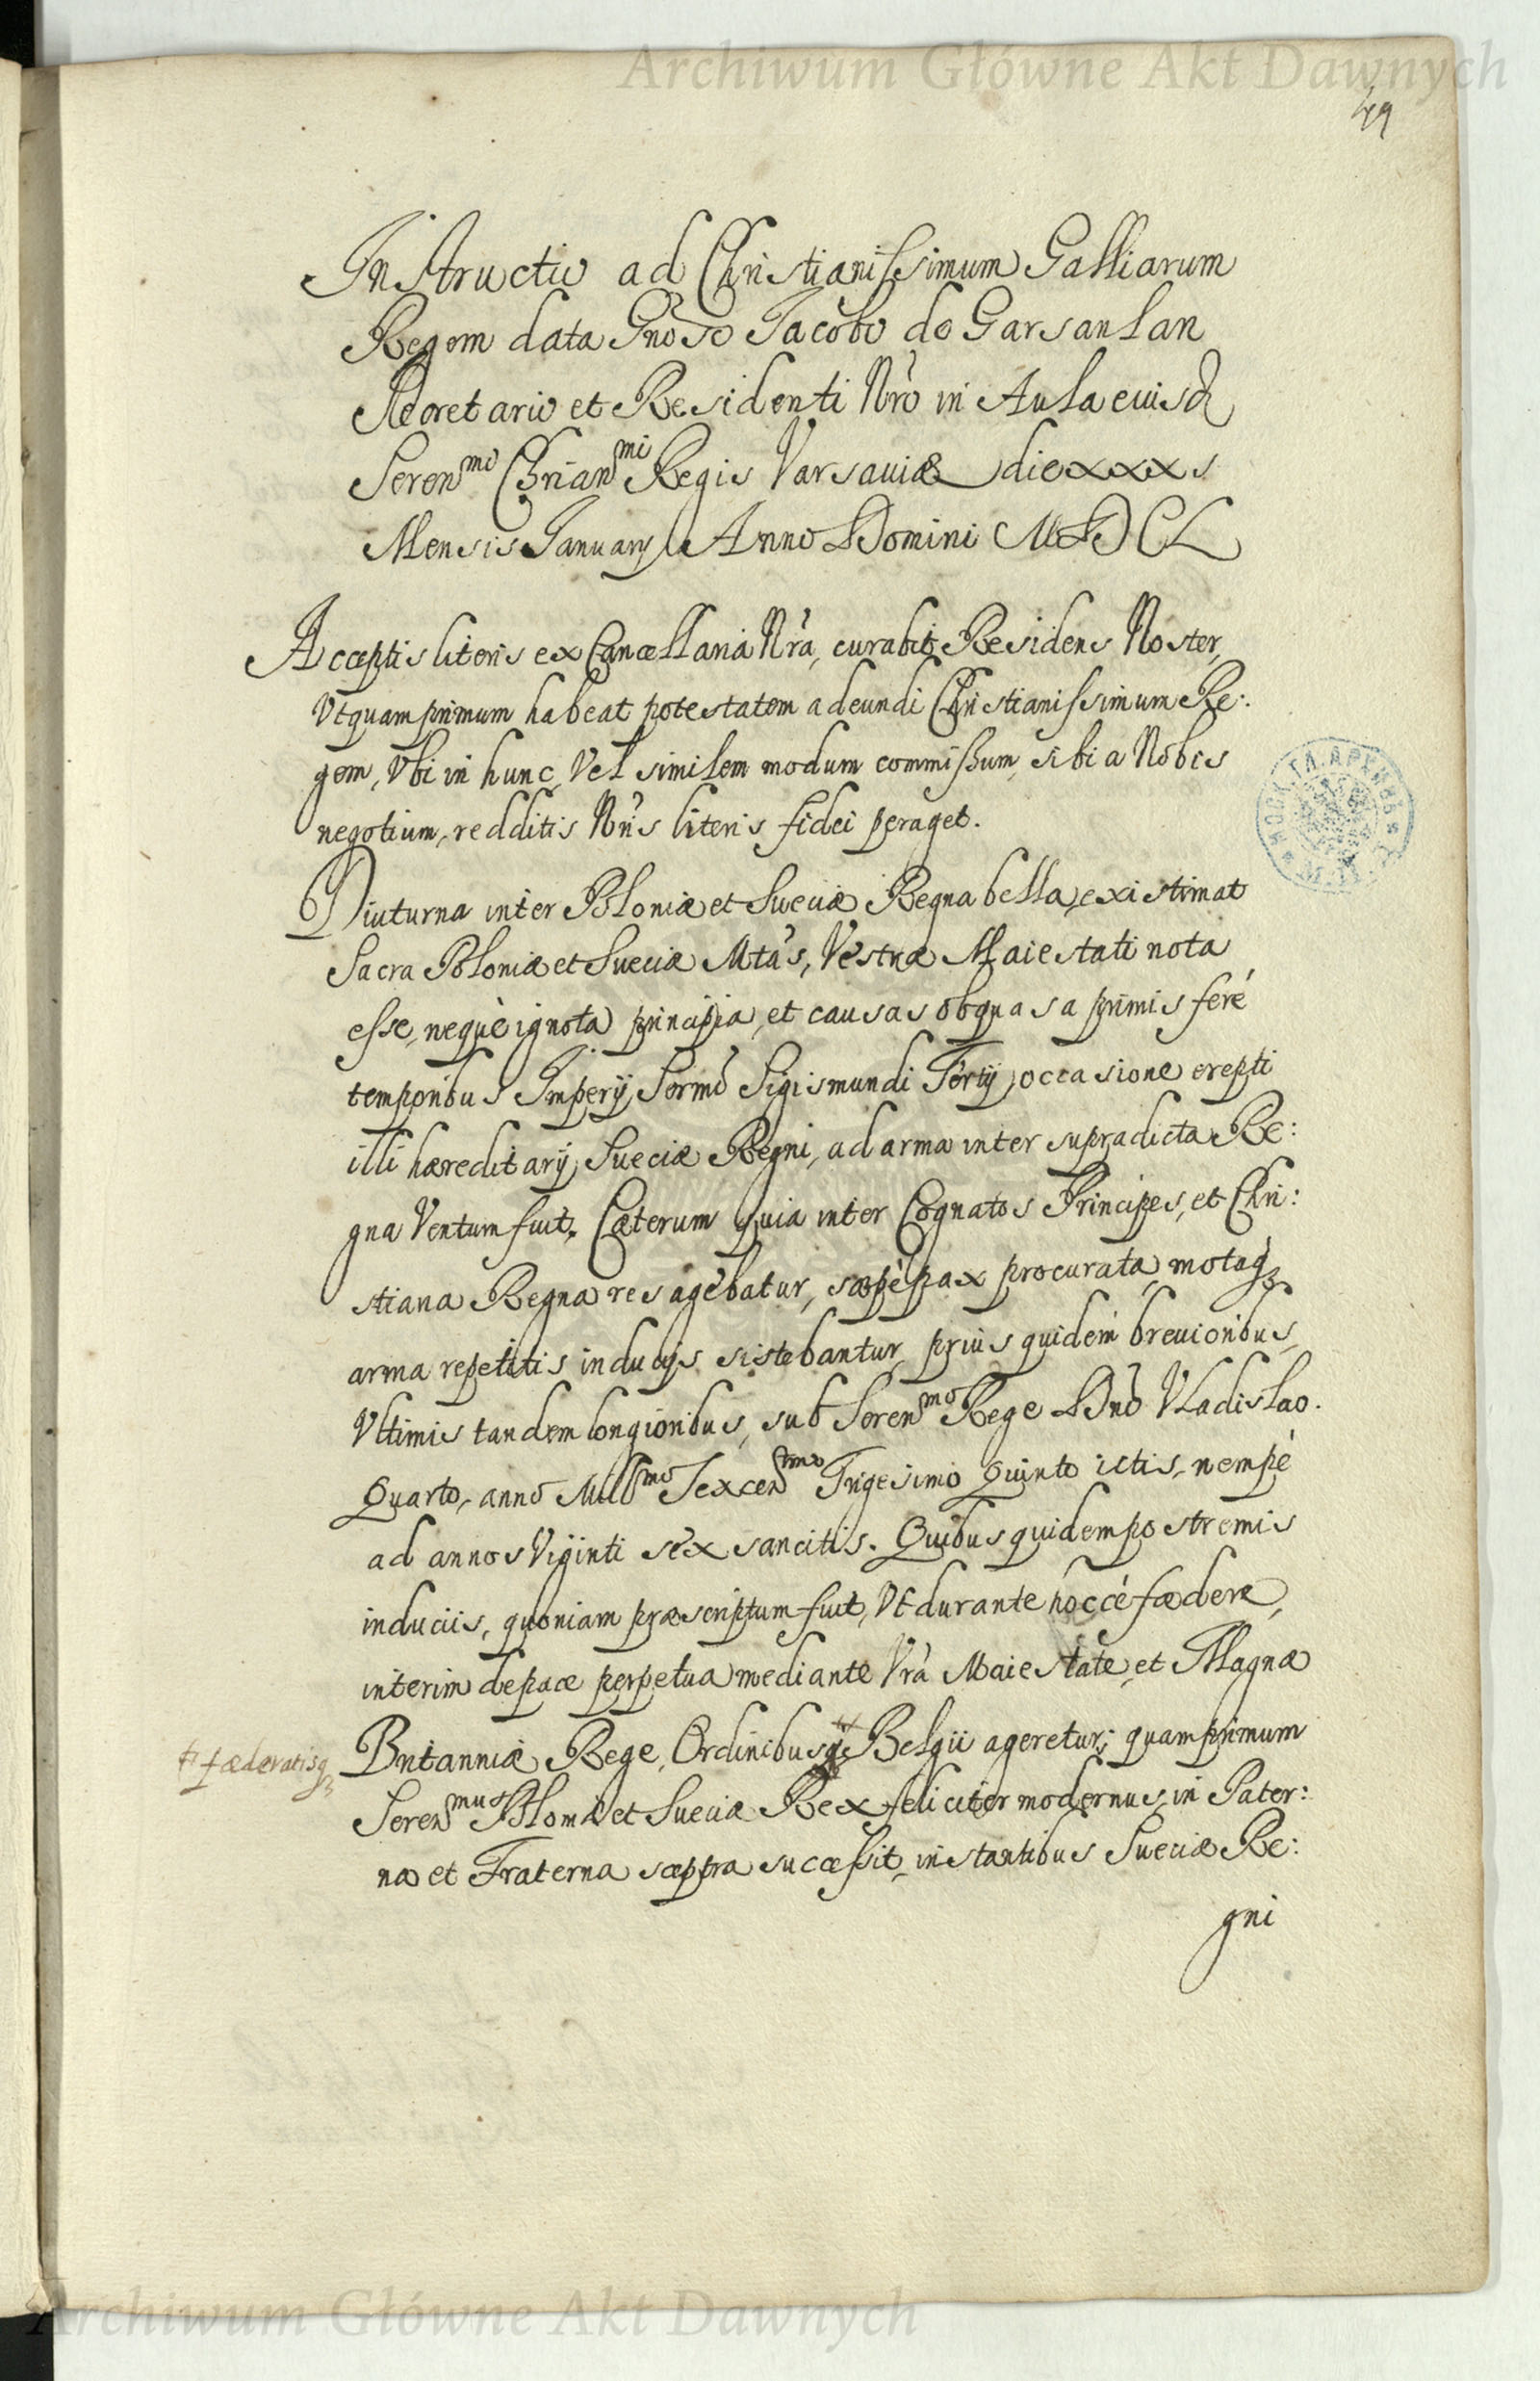 Archiwum Główne Akt Dawnych
49
Instructio ad Christianissimum Galliarum
Regem data Gnoso Jacobo de Garsanlan
Secretario et Residenti Nrō in Aula eiusd
Serenmi Chrianmi Regis Varsauiæ die xxxs
Mensis January Anno Domini MDCL
Acceptis literis ex Cancellaria Nrā, curabit Residens Noster,
Vt quam primum habeat potestatem adeundi Christianissimum Re:
gem, Vbi in hunc, Vel similem modum commissum sibi a Nobis
negotium, redditis Nrīs literis fidei peraget.
Diuturna inter Poloniæ et Sueciæ Regna bella, existimat
Sacra Poloniæ et Sueciæ Mtās, Vestræ Maiestati nota
esse, nequè ignota principia, et causas ob quas a primis ferè
temporibus Imperij Sermī Sigismundi Tertij, occasione erepti
illi hæreditarij Sueciæ Regni, ad arma inter supradicta Re:
gna Ventum fuit. Cæterum quia inter Cognatos Principes, et Chri:
stiana Regna res agebatur, sæpè pax procurata, motaq₃
arma repetitis inducijs sistebantur, prius quidem breuioribus,
Vltimis tandem longioribus, sub Serenmo Rege Dnō Vladislao.
Quarto, anno Millmo Sexcenmo Trigesimo Quinto ictis, nempè
ad annos Viginti sex sancitis. Quibus quidem postremis
induciis, quoniam præscriptum fuit, Vt durante hoccè fædere,
interim de pace perpetua mediante Vrā Maiestate, et Magnæ
Britanniæ Rege, Ordinibus Belgii ageretur; quam primum
fæderatisq₃
Serenmus Poloniæ et Sueciæ Rex feliciter modernus in Pater:
na et Fraterna sceptra successit, instantibus Sueciæ Re:
gni
Archiwum Główne Akt Dawnych